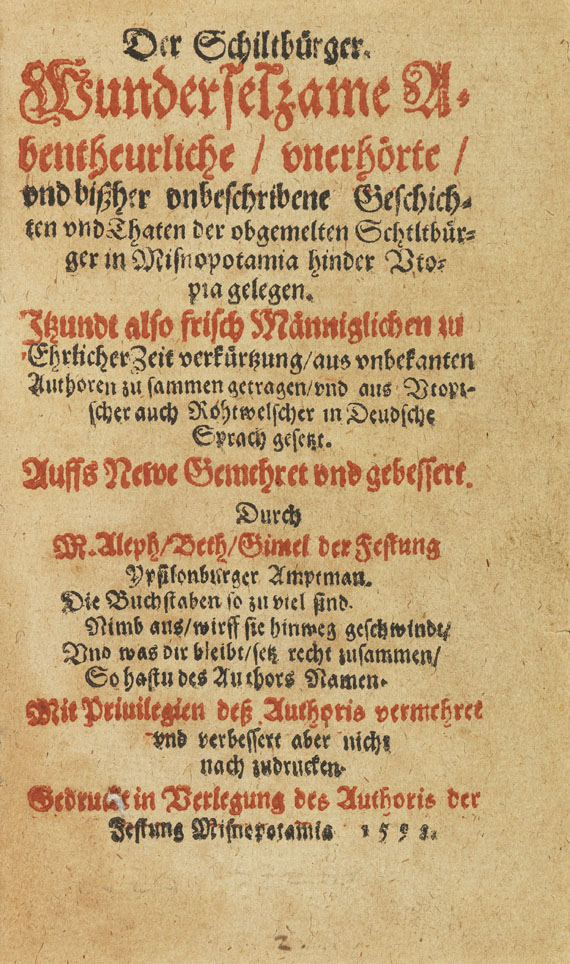 Der Schiltbürger.
Wunderselzame A-
bentheurliche / vnerhörte /
vnd bißher vnbeschribene Geschich-
ten vnd Thaten der obgemelten Schiltbür-
ger in Misnopotamia hinder Vto-
pia gelegen.
Itzundt also frisch Männiglichen zu
Ehrlicher Zeit verkürtzung/aus vnbekanten
Authoren zu sammen getragen/vnd aus Vtopi-
scher auch Röhtwelscher in Deudsche
Sprach gesetzt.
Auffs Newe Gemehret vnd gebessert.
Durch
M. Aleph/Beth/Gimel der Festung
Ypsilonburger Amptman.
Die Buchstaben so zu viel sind.
Nimb aus/wirff sie hinweg geschwindt/
Vnd was dir bleibt/setz recht zusammen/
So hastu des Authors Namen.
Mit Priuilegien deß Authoris vermehret
vnd verbessert aber nicht
nach zudrucken.
Gedruckt in Verlegung des Authoris der
Festung Misnopotamia 1598.
2